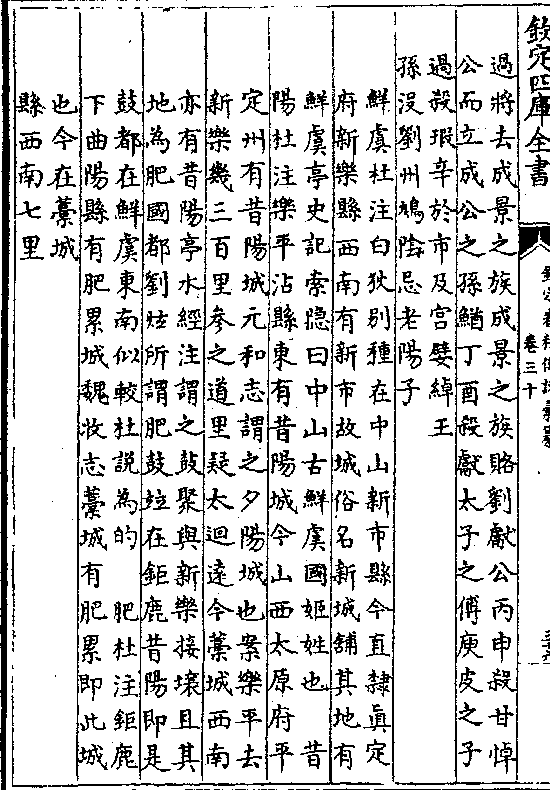 欽定四庫全書
欽定春秋傳說彙纂
卷三十
過將去成景之族成景之族賂劉獻公丙申殺甘悼
公而立成公之孫鰌丁酉殺獻太子之傅庾皮之子
過殺瑕辛於市及宮嬖綽王
孫沒劉州鳩陰忌老陽子
鮮虞杜注白狄別種在中山新市縣今直隸真定
府新樂縣西南有新市故城俗名新城舖其地有
鮮虞亭史記索隱曰中山古鮮虞國姬姓也 昔
陽杜注樂平沾縣東有昔陽城今山西太原府平
定州有昔陽城元和志謂之夕陽城也案樂平去
新樂幾三百里參之道里疑太迴遠今藁城西南
亦有昔陽亭水經注謂之鼓聚與新樂接壤且其
地為肥國都劉炫所謂肥鼓竝在鉅鹿昔陽即是
鼓都在鮮虞東南似較杜說為的 肥杜注鉅鹿
下曲陽縣有肥累城魏收志藁城有肥累即此城
也今在藁城
縣西南七里